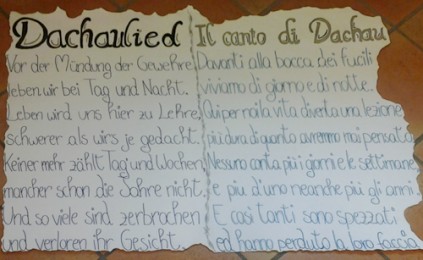 Dachaulied
Vor der Mündung der Gewehre
leben wir bei Tag und Nacht.
Leben wird uns hier zu Lehre,
schwerer als wir's je gedacht.
Keiner mehr zählt Tag und Wochen
mancher schon die Jahre nicht,
Und so viele sind zerbrochen
und verloren ihr Gesicht.
Il canto di Dachau
Davanti alla bocca dei fucili
viviamo di giorno e di notte.
Qui per noi la vita diventa una lezione,
più dura di quanto avremmo mai pensato.
Nessuno conta più i giorni e le settimane,
e più d'uno neanche più gli anni.
E così tanti sono spezzati
ed hanno perduto la loro faccia.